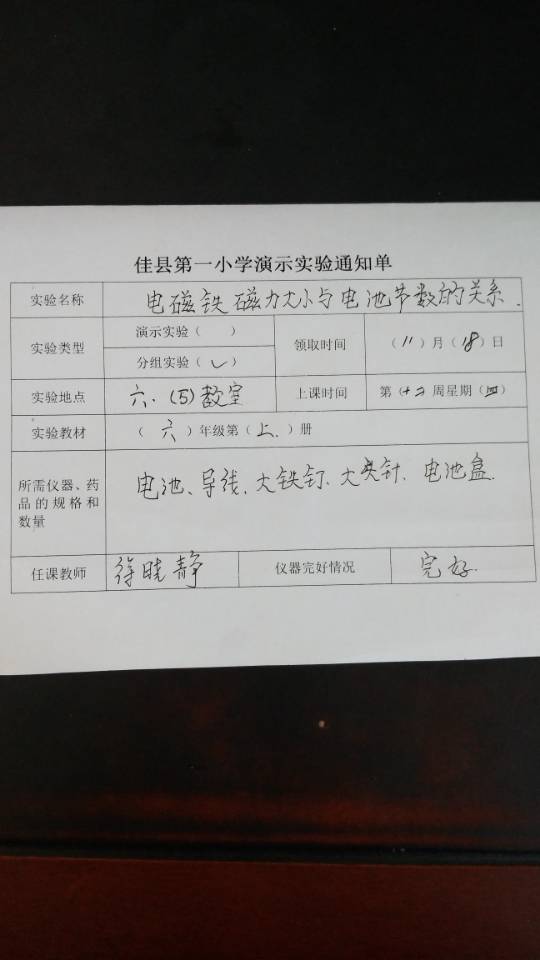 佳县第一小学演示实验通知单
实验名称 电磁铁磁力大小与电池节数的关系.
实验类型 演示实验（ ） 领取时间 （11）月（18）日
分组实验（✓）
实验地点 六.(5)教室 上课时间 第（十二）周星期（四）
实验教材 （六）年级第（上.）册
所需仪器、药 电池、导线、大铁钉、大头针、电池盒.
品的规格和
数量
任课教师 徐晓静 仪器完好情况 完好.